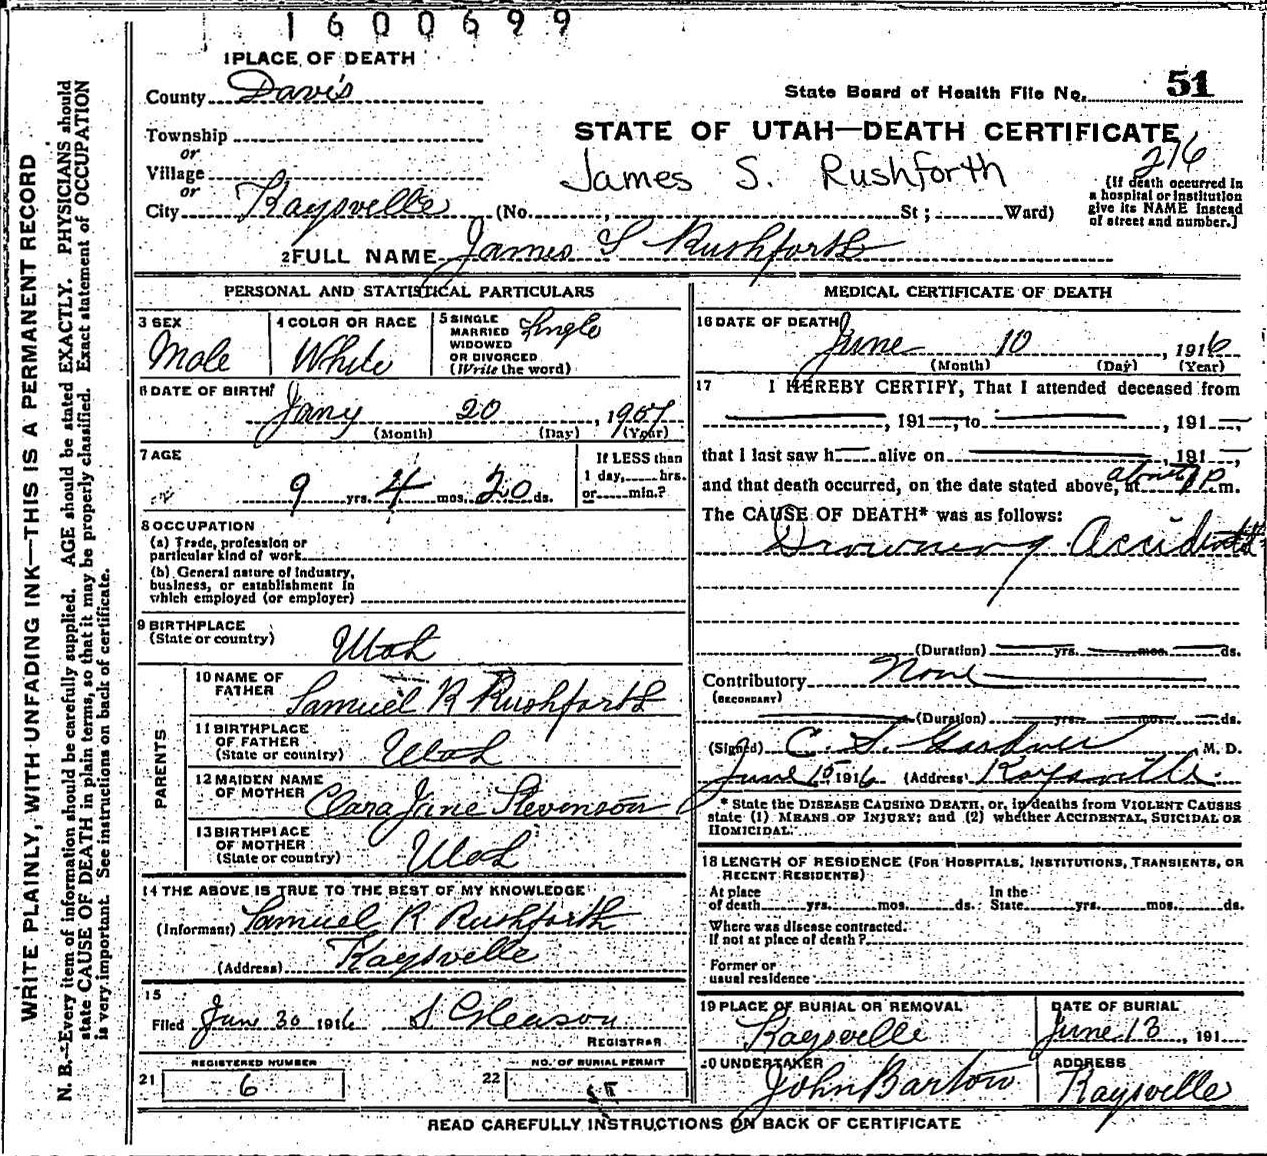 1600699
1 PLACE OF DEATH
County Davis
State Board of Health File No. 51
Township
or
STATE OF UTAH—DEATH CERTIFICATE
276
Village
or
James S. Rushforth
City Kaysville (No. , St ; Ward)
(If death occurred in
a hospital or institution
give its NAME instead
of street and number.]
2 FULL NAME James S Rushforth
PERSONAL AND STATISTICAL PARTICULARS
3 SEX
Male
4 COLOR OR RACE
White
5 SINGLE
MARRIED
WIDOWED
OR DIVORCED
(Write the word)
Single
6 DATE OF BIRTH
Jany 20, 1907
(Month) (Day) (Year)
7 AGE
9 yrs. 4 mos. 20 ds.
If LESS than
1 day, hrs.
or min.?
8 OCCUPATION
(a) Trade, profession or
particular kind of work
(b) General nature of industry,
business, or establishment in
which employed (or employer)
9 BIRTHPLACE
(State or country)
Utah
PARENTS
10 NAME OF
FATHER
Samuel R Rushforth
11 BIRTHPLACE
OF FATHER
(State or country)
Utah
12 MAIDEN NAME
OF MOTHER
Clara Jane Stevenson
13 BIRTHPLACE
OF MOTHER
(State or country)
Utah
14 THE ABOVE IS TRUE TO THE BEST OF MY KNOWLEDGE
(Informant) Samuel R Rushforth
(Address) Kaysville
15
Filed June 30 1916 S Gleason
REGISTRAR
REGISTERED NUMBER
21 6
NO. OF BURIAL PERMIT
22
MEDICAL CERTIFICATE OF DEATH
16 DATE OF DEATH
June 10, 1916
(Month) (Day) (Year)
17 I HEREBY CERTIFY, That I attended deceased from
, 191 , to , 191 ,
that I last saw h alive on , 191 ,
and that death occurred, on the date stated above, at about P.m.
The CAUSE OF DEATH* was as follows:
Drowning Accidental
(Duration) yrs. mos. ds.
Contributory None
(SECONDARY)
(Duration) yrs. mos. ds.
(Signed) C. S. Gardner, M. D.
June 15 1916 (Address) Kaysville.
* State the DISEASE CAUSING DEATH, or, in deaths from VIOLENT CAUSES
state (1) MEANS OF INJURY; and (2) whether ACCIDENTAL, SUICIDAL OR
HOMICIDAL.
18 LENGTH OF RESIDENCE (FOR HOSPITALS, INSTITUTIONS, TRANSIENTS, OR
RECENT RESIDENTS)
At place
of death yrs. mos. ds.
In the
State yrs. mos. ds.
Where was disease contracted.
If not at place of death?
Former or
usual residence
19 PLACE OF BURIAL OR REMOVAL
Kaysville
DATE OF BURIAL
June 13, 191
20 UNDERTAKER
John Barton
ADDRESS
Kaysville
READ CAREFULLY INSTRUCTIONS ON BACK OF CERTIFICATE
WRITE PLAINLY, WITH UNFADING INK—THIS IS A PERMANENT RECORD
N. B.—Every item of information should be carefully supplied. AGE should be stated EXACTLY. PHYSICIANS should
state CAUSE OF DEATH in plain terms, so that it may be properly classified. Exact statement of OCCUPATION
is very important. See instructions on back of certificate.